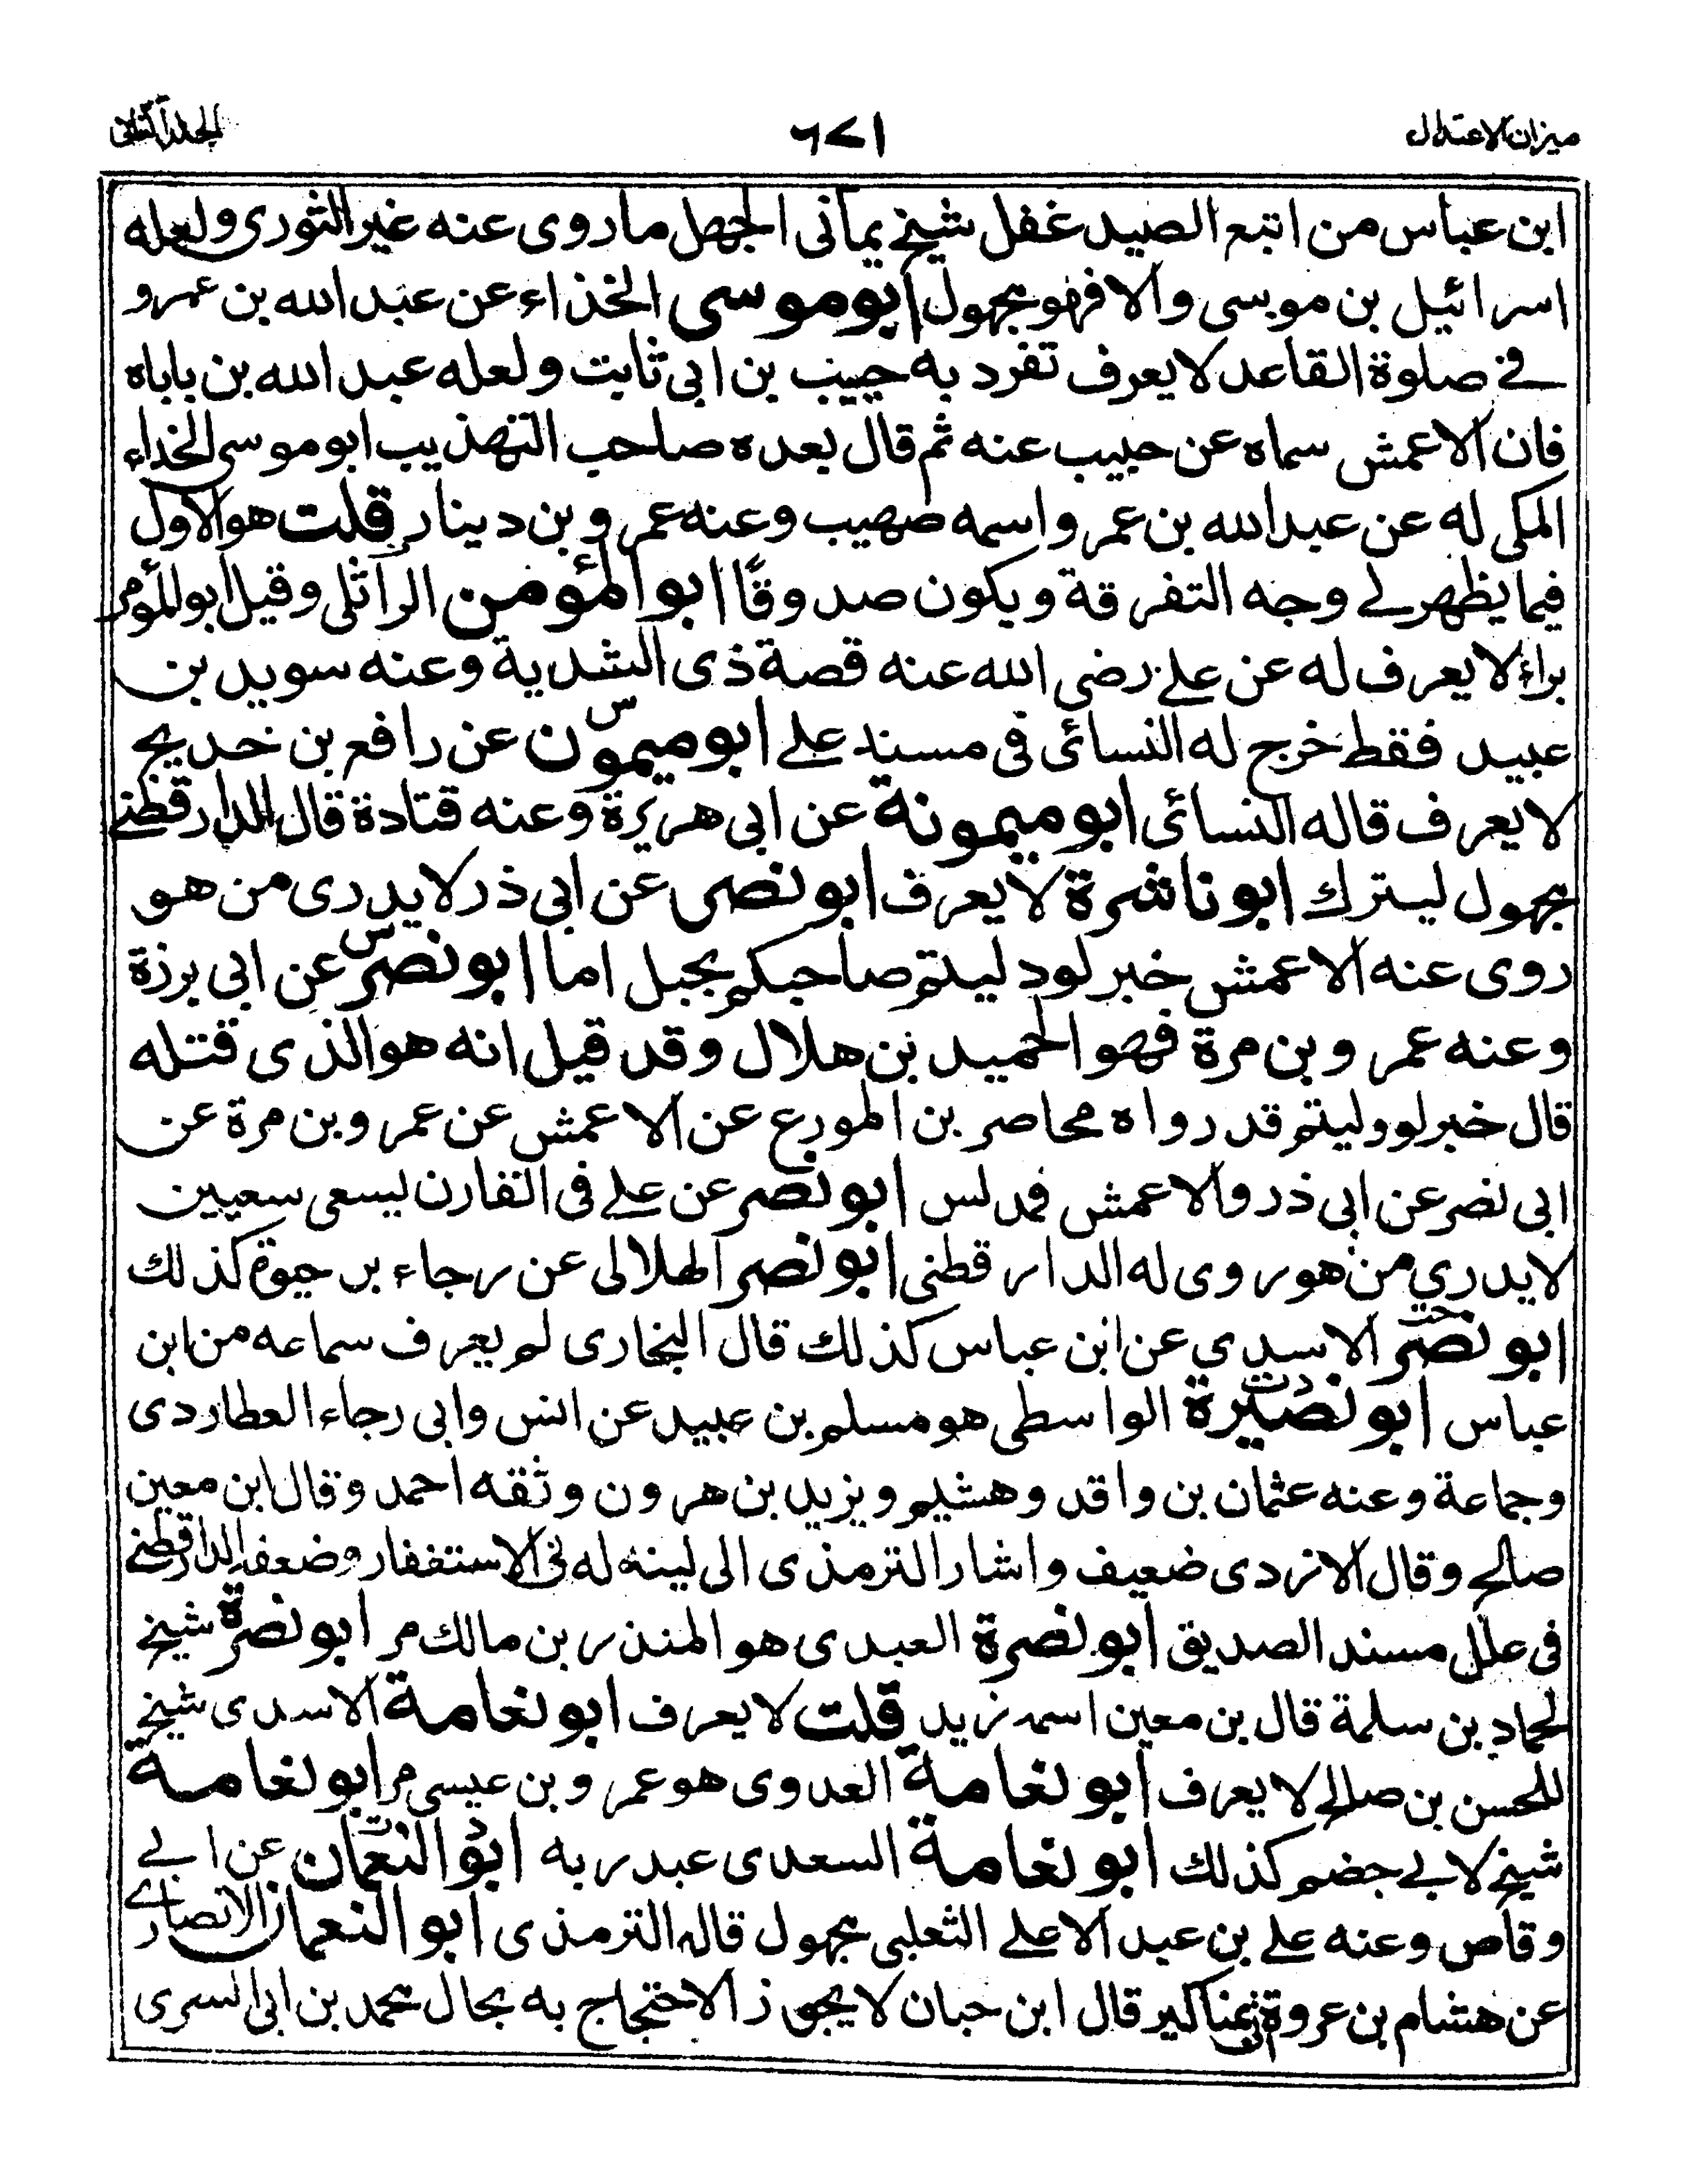 ميزان الاعتدال
٦٧١
المجلد الثاني
ابن عباس من اتبع الصيد غفل شيخ يماني الجهل ما روى عنه غير الثوري ولعله
اسرائيل بن موسى والا فهو مجهول ابو موسى الحذاء عن عبد الله بن عمرو
في صلوة القاعد لا يعرف تفرد به حبيب بن ابي ثابت ولعله عبد الله بن باباه
فان الاعمش سماه عن حبيب عنه ثم قال بعده صاحب التهذيب ابو موسى الحذاء
المكي له عن عبد الله بن عمر واسمه صهيب وعنه عمرو بن دينار قلت هو الاول
فيما يظهر لي وجه التفرقة ويكون صدوقًا ابو المؤمن الراثلي وقيل ابو المؤمر
براء لا يعرف له عن علي رضي الله عنه قصة ذي الشدية وعنه سويد بن
عبيد فقط خرج له النسائي في مسند علي ابو ميمون س عن رافع بن خديج
لا يعرف قاله النسائي ابو ميمونة عن ابي هريرة وعنه قتادة قال الدارقطني
مجهول ليترك ابو ناشرة لا يعرف ابو نصر عن ابي ذر لا يدرى من هو
روى عنه الاعمش خبر لود ليتم صاحبكم بجبل اما ابو نصر س عن ابي برزة
وعنه عمرو بن مرة فهو الحميد بن هلال وقد قيل انه هو الذي قتله
قال خبر لو وليتم قد رواه محاصر بن المورع عن الاعمش عن عمرو بن مرة عن
ابي نصر عن ابي ذر والاعمش فمدلس ابو نصر عن علي في القارن ليسعى سعيين
لا يدري من هو روى له الدارقطني ابو نصر الهلالى عن رجاء بن حيوة كذلك
ابو نصر الاسدي عن ابن عباس كذلك قال البخاري لم يعرف سماعه من ابن
عباس ابو نصيرة دت الواسطى هو مسلم بن عبيد عن انس وابي رجاء العطاردي
وجماعة وعنه عثمان بن واقد وهشيم ويزيد بن هرون وثقه احمد وقال ابن معين
صالح وقال الازدي ضعيف واشار الترمذي الى لينه له في الاستغفار وضعفه الدارقطني
في علل مسند الصديق ابو نضرة العبدي هو المنذر بن مالك مر ابو نضرة شيخ
لحماد بن سلمة قال بن معين اسمه زيد قلت لا يعرف ابو نعامة الاسدي شيخ
للحسن بن صالح لا يعرف ابو نعامة العدوي هو عمرو بن عيسى مر ابو نعامة
شيخ لابي جضم كذلك ابو نعامة السعدي عبد ربه ابو النعمان دت عن ابي
وقاص وعنه علي بن عبد الاعلى الثعلبي مجهول قاله الترمذي ابو النعمان الانصاري
عن هشام بن عروة بمناكير قال ابن حبان لا يجوز الاحتجاج به بحال محمد بن ابي السري